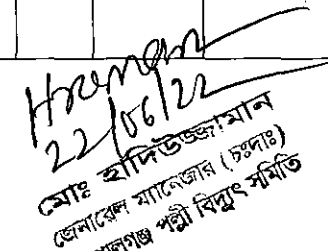 22/06/22
মোঃ হাদিউজ্জামান
জেনারেল ম্যানেজার (চঃদাঃ)
পল্লী বিদ্যুৎ সমিতি